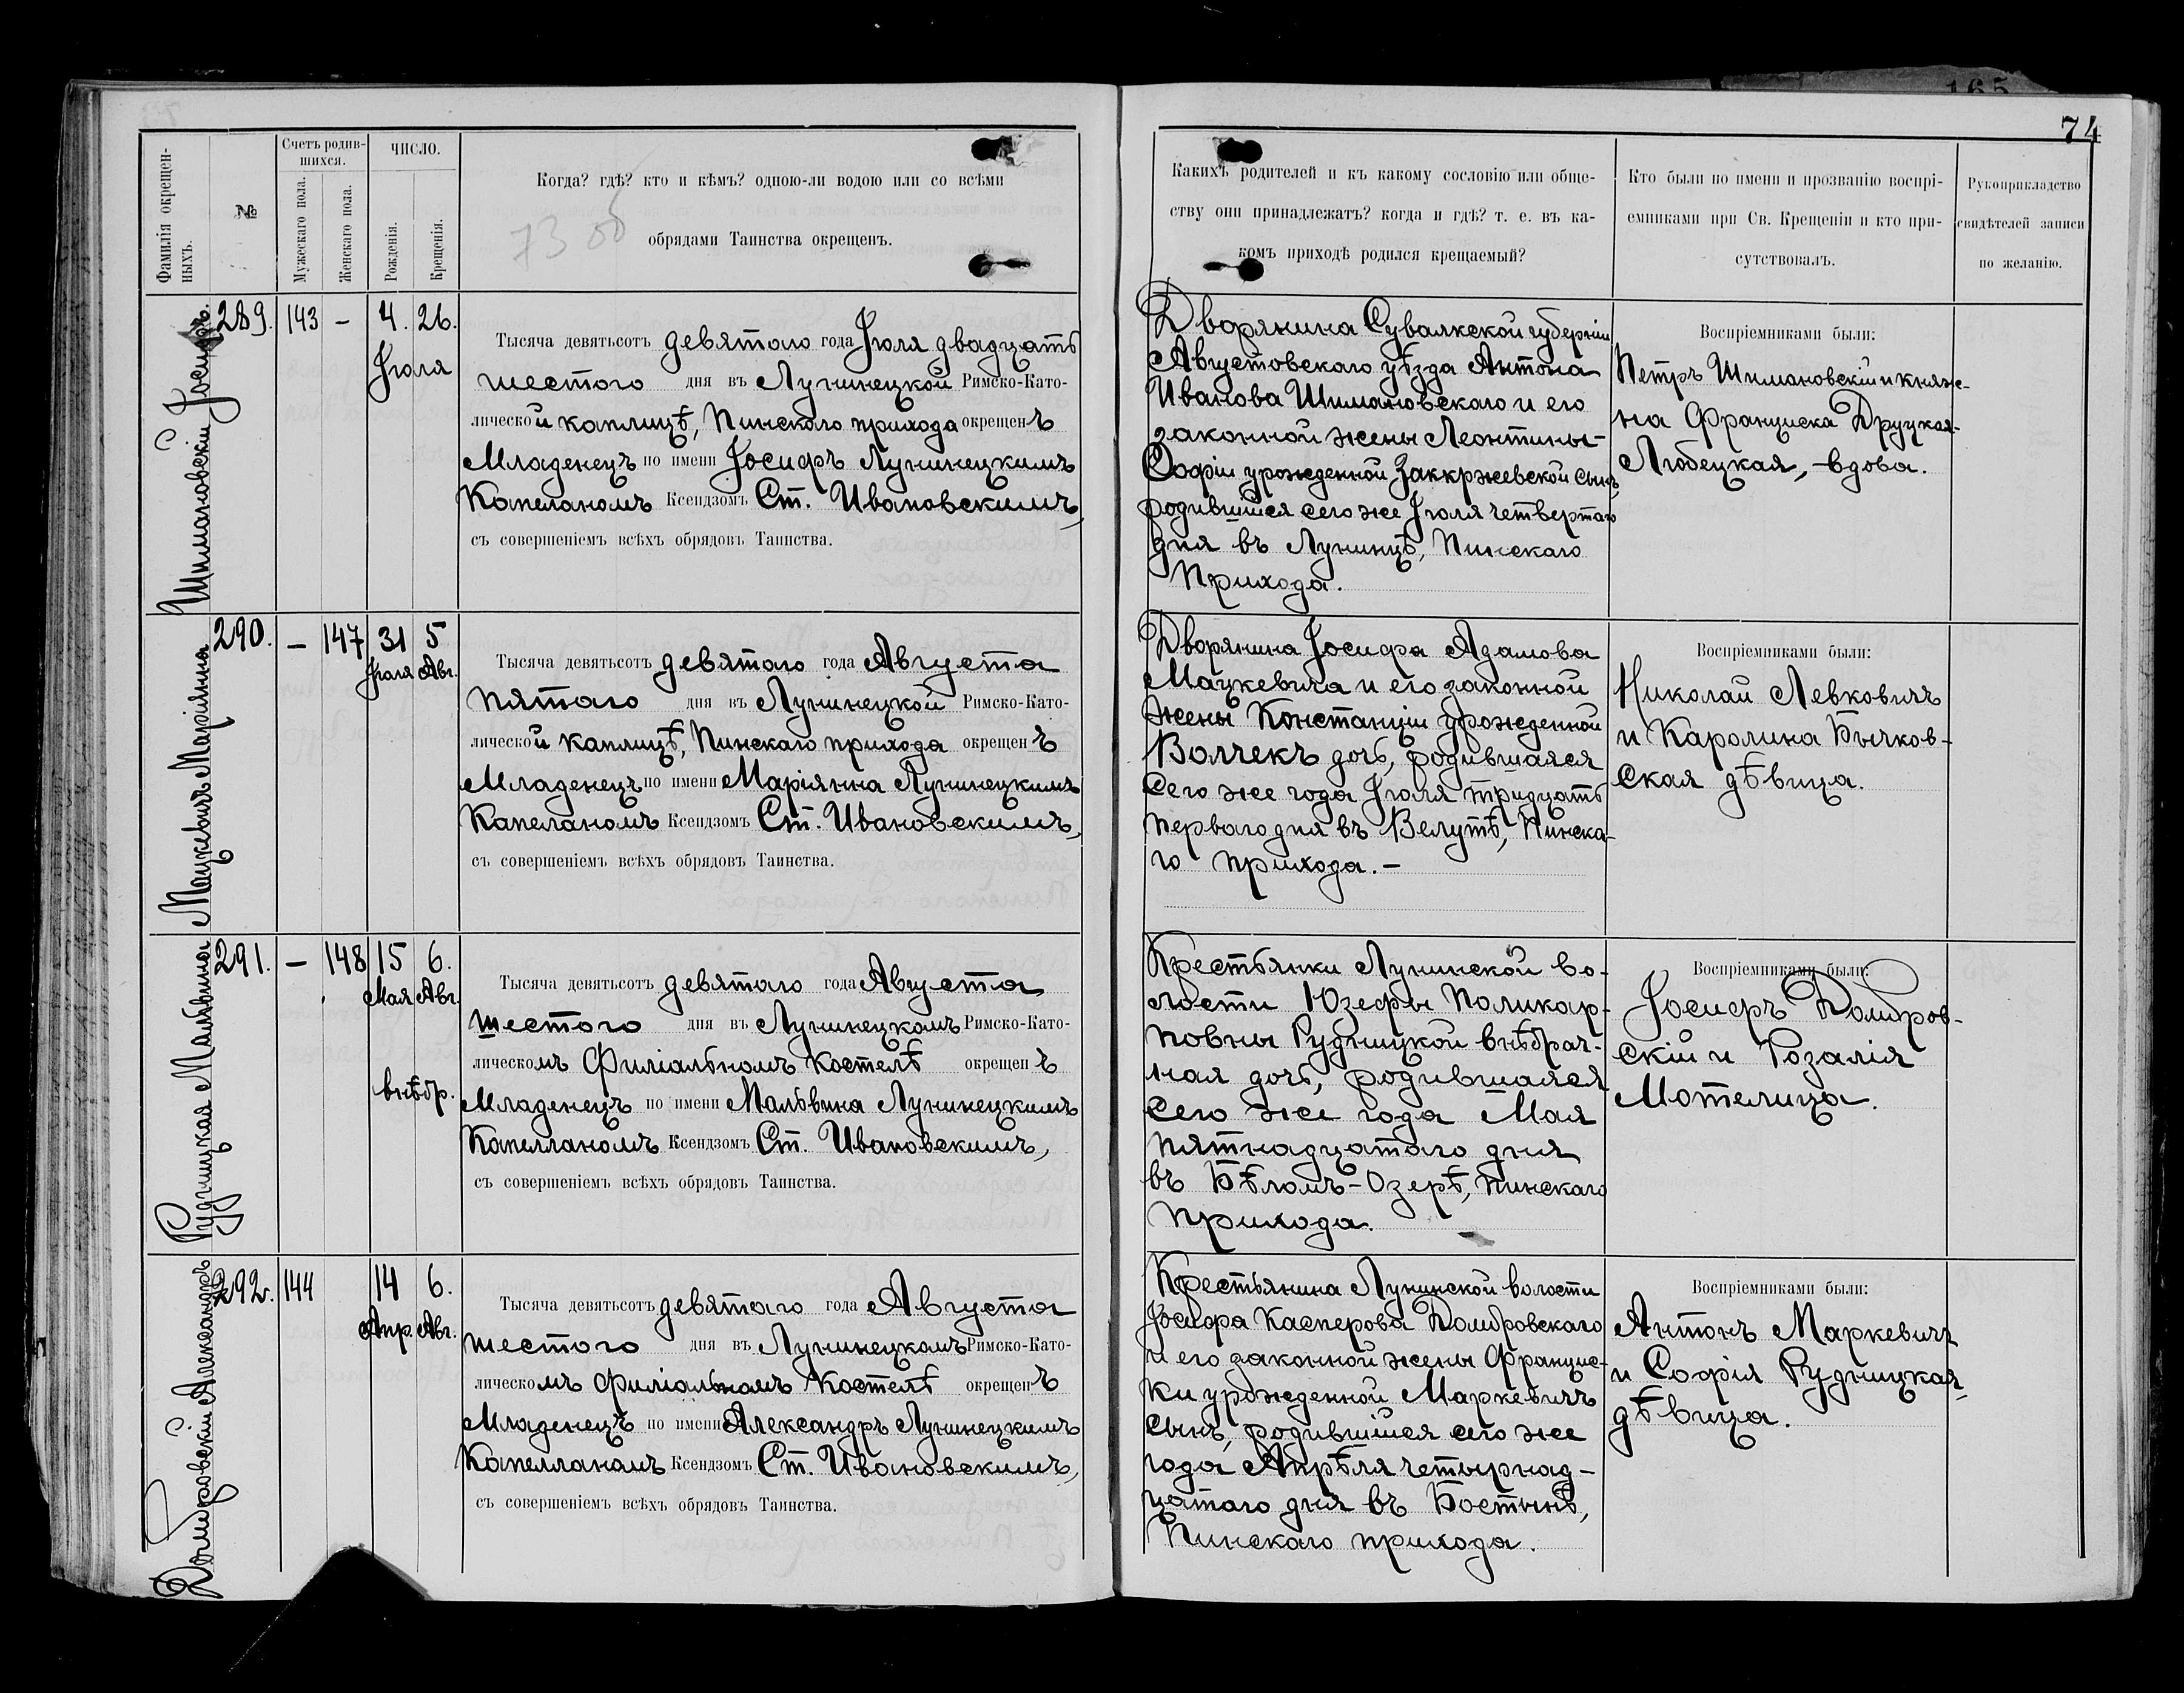 165
74
Фамилія окрещен-
ныхъ.
№
Счетъ родив-
шихся.
Мужескаго пола.
Женскаго пола.
ЧИСЛО.
Рожденія.
Крещенія.
Когда? гдѣ? кто и кѣмъ? одною-ли водою или со всѣми
обрядами Таинства окрещенъ.
73 об
Какихъ родителей и къ какому сословію или обще-
ству они принадлежатъ? когда и гдѣ? т. е. въ ка-
комъ приходѣ родился крещаемый?
Кто были по имени и прозванію воспрі-
емниками при Св. Крещеніи и кто при-
сутствовалъ.
Рукоприкладство
свидѣтелей записи
по желанію.
Шимановскій Іосифъ.
289. 143 – 4. 26.
Іюля
Тысяча девятьсотъ девятаго года Іюля двадцать
шестого дня въ Лунинецкой Римско-Като-
лической каплицѣ, Пинскаго прихода окрещенъ
Младенецъ по имени Іосифъ Лунинецкимъ
Капеланомъ Ксендзомъ Ст. Ивановскимъ,
съ совершеніемъ всѣхъ обрядовъ Таинства.
Дворянина Сувалкской губерніи
Августовскаго уѣзда Антона
Иванова Шимановскаго и его
законной жены Леонтины-
Софіи урожденной Заккржевской сынъ,
родившійся сего же Іюля четвертаго
дня въ Лунинцѣ, Пинскаго
Прихода.
Воспріемниками были:
Петръ Шимановскій и княж-
на Франциска Друцкая-
Любецкая, – вдова.
Мацкевичъ Маріянна
290. – 147 31 5
Іюля Авг.
Тысяча девятьсотъ девятаго года Августа
пятаго дня въ Лунинецкой Римско-Като-
лической каплицѣ, Пинскаго прихода окрещенъ
Младенецъ по имени Маріянна Лунинецкимъ
Капеланомъ Ксендзомъ Ст. Ивановскимъ,
съ совершеніемъ всѣхъ обрядовъ Таинства.
Дворянина Іосифа Адамова
Мацкевича и его законной
жены Констанціи урожденной
Волчекъ дочь, родившаяся
сего же года Іюля тридцать
перваго дня въ Велутѣ, Пинска-
го прихода. –
Воспріемниками были:
Николай Левковичъ
и Каролина Бычков-
ская дѣвица.
Рудницкая Мальвина
291. – 148 15 6.
Мая Авг.
внѣбр.
Тысяча девятьсотъ девятаго года Августа
шестого дня въ Лунинецкомъ Римско-Като-
лическомъ Филіальномъ Костелѣ окрещенъ
Младенецъ по имени Мальвина Лунинецкимъ
Капелланомъ Ксендзомъ Ст. Ивановскимъ,
съ совершеніемъ всѣхъ обрядовъ Таинства.
Крестьянки Лунинской во-
лости Юзефы Поликар-
повны Рудницкой внѣбрач-
ная дочь, родившаяся
сего же года Мая
пятнадцатаго дня
въ Бѣломъ-Озерѣ, Пинскаго
прихода.
Воспріемниками были:
Іосифъ Домбров-
скій и Розалія
Мотелица.
Домбровскій Александръ
292. 144 14 6.
Апр. Авг.
Тысяча девятьсотъ девятаго года Августа
шестого дня въ Лунинецкомъ Римско-Като-
лическомъ Филіальномъ Костелѣ окрещенъ
Младенецъ по имени Александръ Лунинецкимъ
Капелланомъ Ксендзомъ Ст. Ивановскимъ,
съ совершеніемъ всѣхъ обрядовъ Таинства.
Крестьянина Лунинской волости
Іосифа Касперова Домбровскаго
и его законной жены Францис-
ки урожденной Маркевичъ
сынъ, родившійся сего же
года Апрѣля четырнад-
цатаго дня въ Бостынѣ,
Пинскаго прихода.
Воспріемниками были:
Антонъ Маркевичъ
и Софія Рудницкая,
дѣвица.